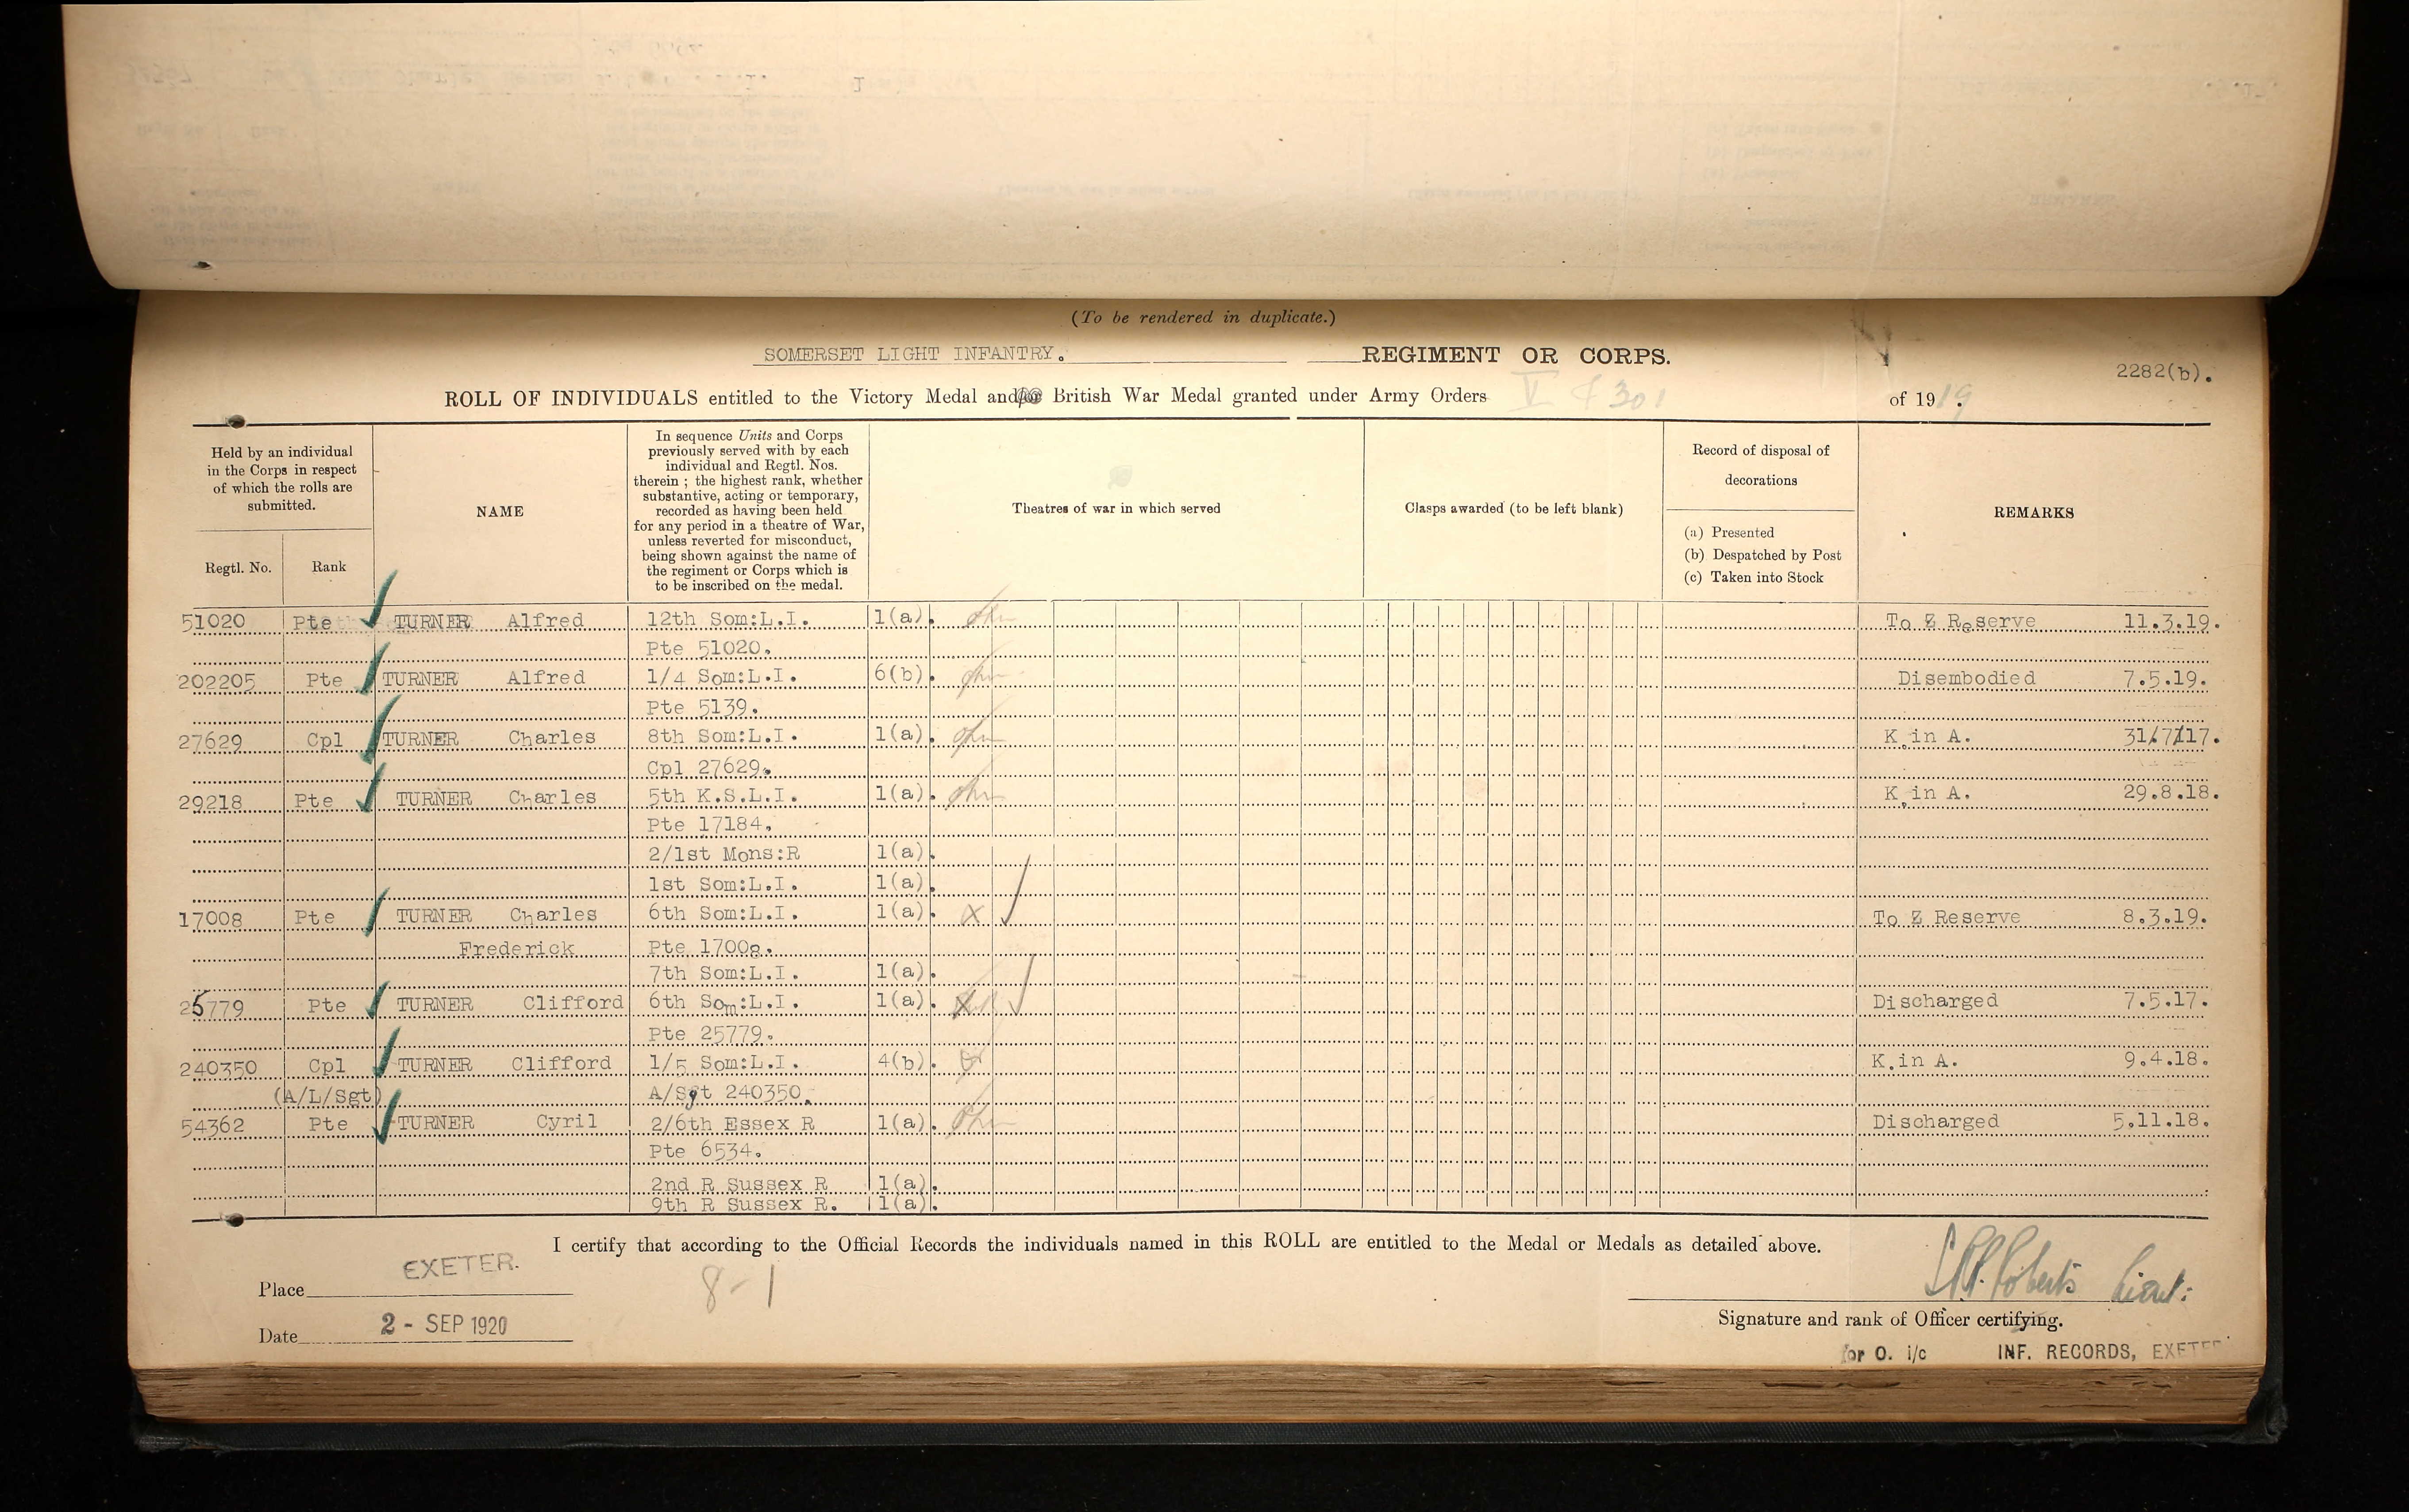 (To be rendered in duplicate.)
SOMERSET LIGHT INFANTRY. REGIMENT OR CORPS.
2282(b).
ROLL OF INDIVIDUALS entitled to the Victory Medal and British War Medal granted under Army Orders V & 301 of 1919.
Held by an individual
in the Corps in respect
of which the rolls are
submitted.
Regtl. No. Rank
NAME
In sequence Units and Corps
previously served with by each
individual and Regtl. Nos.
therein ; the highest rank, whether
substantive, acting or temporary,
recorded as having been held
for any period in a theatre of War,
unless reverted for misconduct,
being shown against the name of
the regiment or Corps which is
to be inscribed on the medal.
Theatres of war in which served
Clasps awarded (to be left blank)
Record of disposal of
decorations
(a) Presented
(b) Despatched by Post
(c) Taken into Stock
REMARKS
51020 Pte TURNER Alfred 12th Som:L.I. 1(a). To Z Reserve 11.3.19.
Pte 51020.
202205 Pte TURNER Alfred 1/4 Som:L.I. 6(b). Disembodied 7.5.19.
Pte 5139.
27629 Cpl TURNER Charles 8th Som:L.I. 1(a). K.in A. 31/7/17.
Cpl 27629.
29218 Pte TURNER Charles 5th K.S.L.I. 1(a). K.in A. 29.8.18.
Pte 17184.
2/1st Mons:R 1(a).
1st Som:L.I. 1(a).
17008 Pte TURNER Charles 6th Som:L.I. 1(a). X To Z Reserve 8.3.19.
Frederick Pte 17008.
7th Som:L.I. 1(a).
25779 Pte TURNER Clifford 6th Som:L.I. 1(a). Discharged 7.5.17.
Pte 25779.
240350 Cpl TURNER Clifford 1/5 Som:L.I. 4(b). K.in A. 9.4.18.
(A/L/Sgt) A/Sgt 240350.
54362 Pte TURNER Cyril 2/6th Essex R 1(a). Discharged 5.11.18.
Pte 6534.
2nd R Sussex R 1(a).
9th R Sussex R. 1(a).
I certify that according to the Official Records the individuals named in this ROLL are entitled to the Medal or Medals as detailed above.
Place EXETER.
8-1
Roberts Lieut:
Date 2 - SEP 1920
Signature and rank of Officer certifying.
for O. i/c INF. RECORDS, EXETER